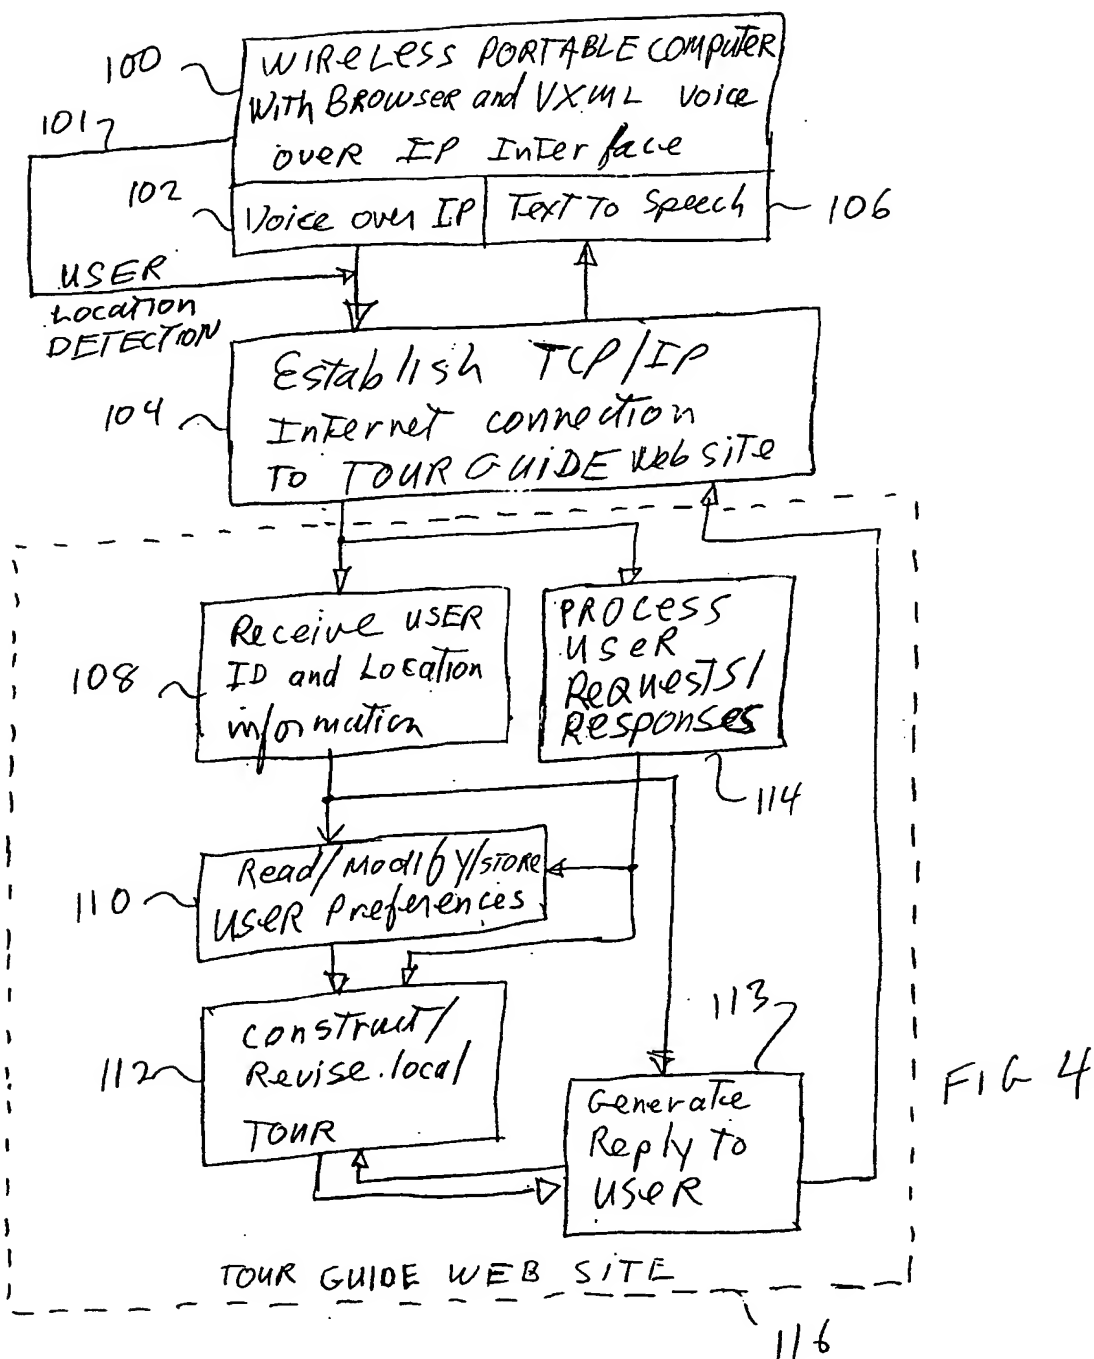 100
WIReLess PORTABLE COMPUTER
With BROWSER and VXML Voice
over IP InTerface
101
102
Voice over IP
Text To Speech
106
USER
Location
DETECTION
104
Establish TCP/IP
Internet connection
To TOUR GUIDE Web site
108
Receive USER
ID and Location
information
PROCESS
USER
Requests/
Responses
114
110
Read/Modify/STORE
USER Preferences
112
Construct/
Revise local
TOUR
113
Generate
Reply to
USER
FIG 4
TOUR GUIDE WEB SITE
116